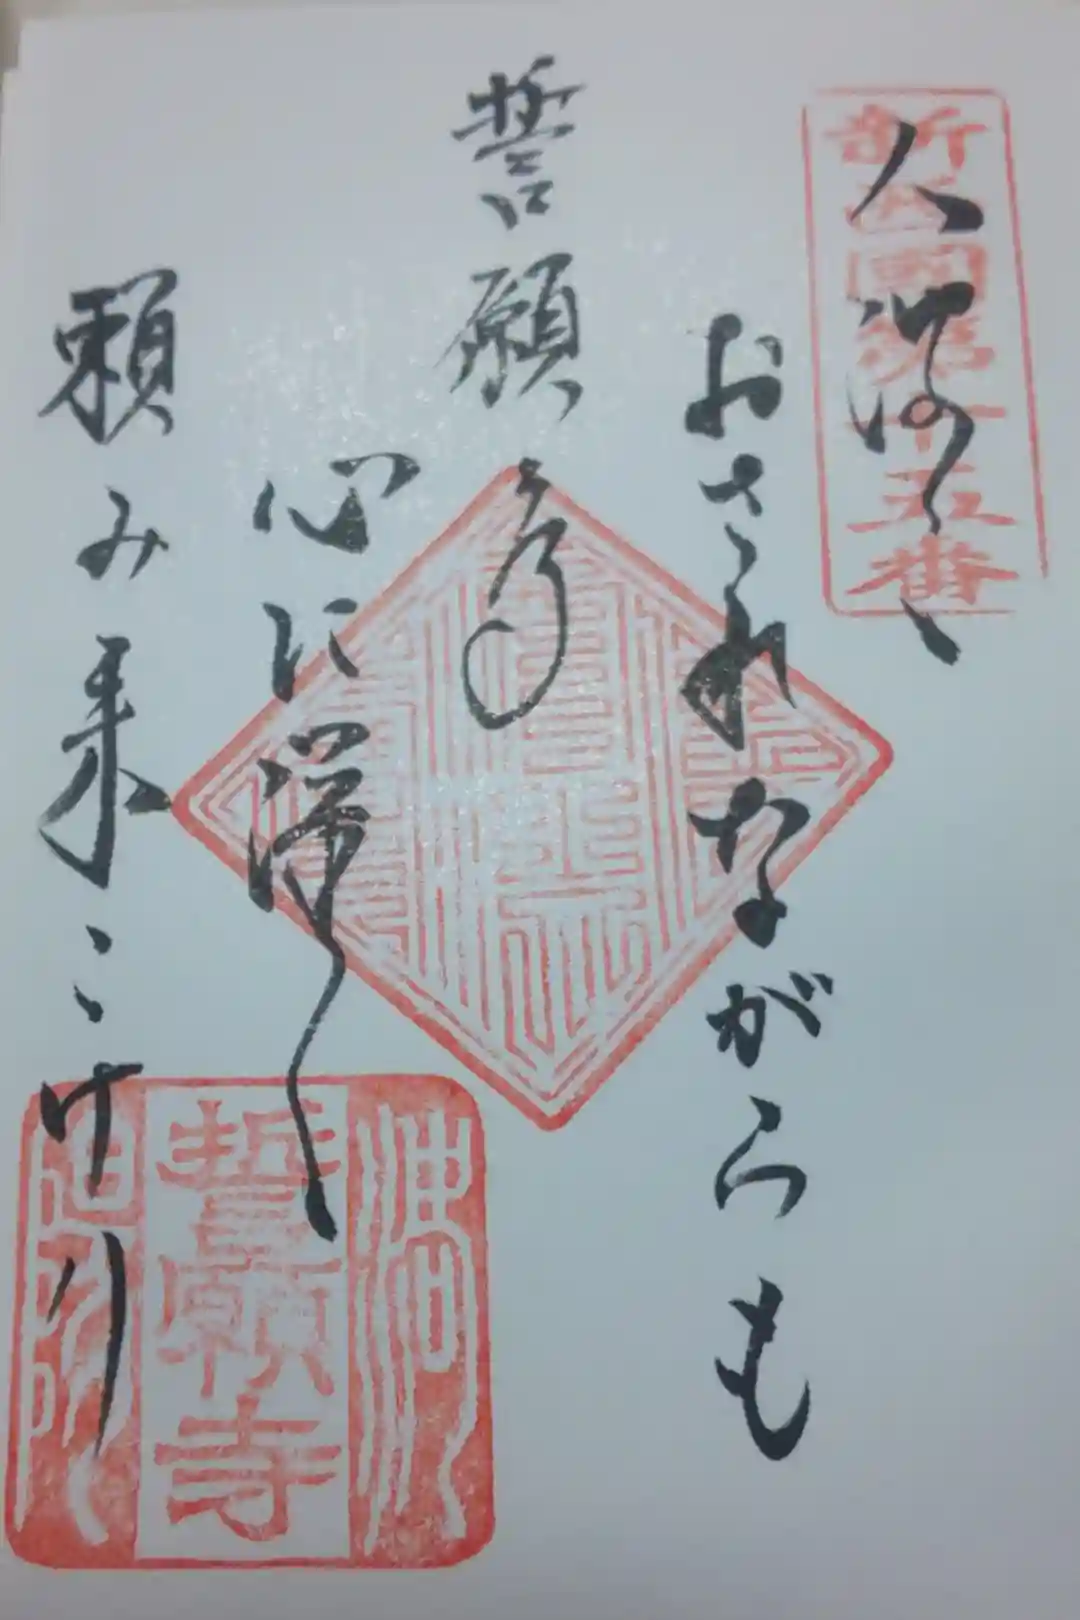 新西国第十五番
人波に
おされながらも
誓願の
心に深く
頼み来にけり
誓願寺